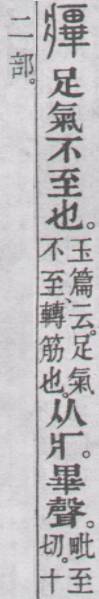 足氣不至也。玉篇云。足氣不至、轉筋也。从疒。畢聲。毗至切。十
二部。